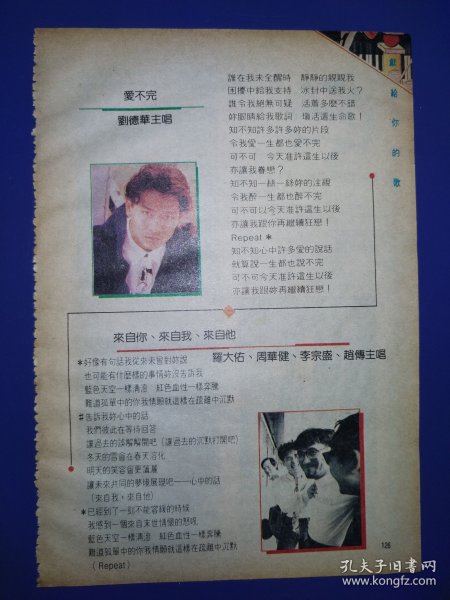 獻給你的歌
愛不完
劉德華主唱
誰在我未全醒時　靜靜的親親我
困擾中給我支持　冰封中送我火？
誰令我絕無可疑　活著多麼不錯
妳眼睛給我歌詞　墳活這生命歌！
知不知許多許多妳的片段
令我愛一生都也愛不完
可不可　今天准許這生以後
亦讓我眷戀？
知不知一絲一絲妳的注視
令我醉一生都也醉不完
可不可以今天准許這生以後
亦讓我跟你再繼續狂戀！
Repeat *
知不知心中許多愛的說話
就算說一生都也說不完
可不可今天准許這生以後
亦讓我跟妳再繼續狂戀！
來自你、來自我、來自他
羅大佑、周華健、李宗盛、趙傳主唱
*好像有句話我從來未曾對妳說
也可能有什麼樣的事情妳沒告訴我
藍色天空一樣清澄　紅色血性一樣奔騰
難道孤單中的你我情願就這樣在疏離中沉默
#告訴我妳心中的話
我們彼此在等待回答
讓過去的誤解解開吧（讓過去的沉默打開吧）
冬天的雪會在春天溶化
明天的笑容會更瀟灑
讓未來共同的夢緣展現吧——心中的話
（來自我，來自他）
*已經到了一刻不能容緩的時候
我感到一個來自末世情懷的怒吼
藍色天空一樣清澄　紅色血性一樣奔騰
難道孤單中的你我情願就這樣在疏離中沉默
（Repeat）
126
孔夫子旧书网
www.kongfz.com